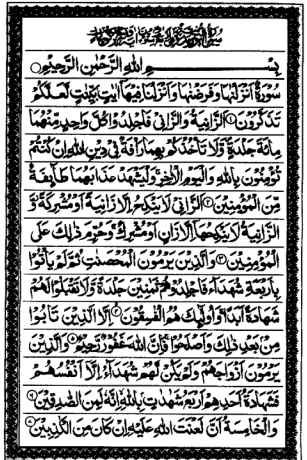 بِسْمِ اللهِ الرَّحْمٰنِ الرَّحِيْمِ
سُوْرَةٌ اَنْزَلْنٰهَا وَفَرَضْنٰهَا وَاَنْزَلْنَا فِيْهَآ اٰيٰتٍ بَيِّنٰتٍ لَّعَلَّكُمْ
تَذَكَّرُوْنَ ۱ اَلزَّانِيَةُ وَالزَّانِيْ فَاجْلِدُوْا كُلَّ وَاحِدٍ مِّنْهُمَا
مِائَةَ جَلْدَةٍ وَّلَا تَاْخُذْكُمْ بِهِمَا رَاْفَةٌ فِيْ دِيْنِ اللهِ اِنْ كُنْتُمْ
تُؤْمِنُوْنَ بِاللهِ وَالْيَوْمِ الْاٰخِرِ وَلْيَشْهَدْ عَذَابَهُمَا طَآئِفَةٌ
مِّنَ الْمُؤْمِنِيْنَ ۲ اَلزَّانِيْ لَا يَنْكِحُ اِلَّا زَانِيَةً اَوْ مُشْرِكَةً وَّ
الزَّانِيَةُ لَا يَنْكِحُهَآ اِلَّا زَانٍ اَوْ مُشْرِكٌ وَحُرِّمَ ذٰلِكَ عَلَى
الْمُؤْمِنِيْنَ ۳ وَالَّذِيْنَ يَرْمُوْنَ الْمُحْصَنٰتِ ثُمَّ لَمْ يَاْتُوْا
بِاَرْبَعَةِ شُهَدَآءَ فَاجْلِدُوْهُمْ ثَمٰنِيْنَ جَلْدَةً وَّلَا تَقْبَلُوْا لَهُمْ
شَهَادَةً اَبَدًا وَاُولٰٓئِكَ هُمُ الْفٰسِقُوْنَ ۴ اِلَّا الَّذِيْنَ تَابُوْا
مِنْ بَعْدِ ذٰلِكَ وَاَصْلَحُوْا فَاِنَّ اللهَ غَفُوْرٌ رَّحِيْمٌ ۵ وَالَّذِيْنَ
يَرْمُوْنَ اَزْوَاجَهُمْ وَلَمْ يَكُنْ لَّهُمْ شُهَدَآءُ اِلَّآ اَنْفُسُهُمْ
فَشَهَادَةُ اَحَدِهِمْ اَرْبَعُ شَهٰدٰتٍ بِاللهِ اِنَّهٗ لَمِنَ الصّٰدِقِيْنَ ۶
وَالْخَامِسَةُ اَنَّ لَعْنَتَ اللهِ عَلَيْهِ اِنْ كَانَ مِنَ الْكٰذِبِيْنَ ۷